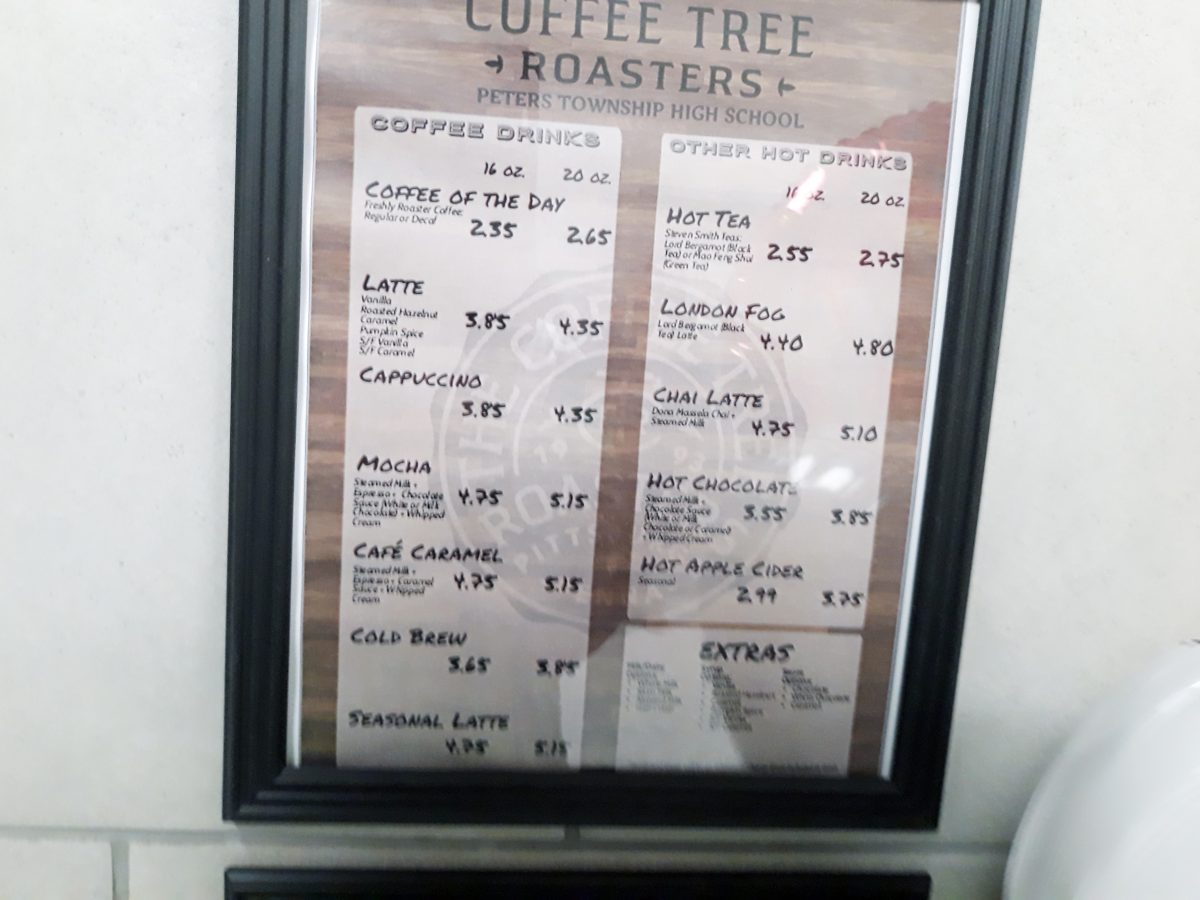 COFFEE TREE
ROASTERS
PETERS TOWNSHIP HIGH SCHOOL
COFFEE DRINKS
16 OZ. 20 OZ.
COFFEE OF THE DAY
Freshly Roaster Coffee
Regular or Decaf
2.35 2.65
LATTE
Vanilla
Roasted Hazelnut
Caramel
Pumpkin Spice
S/F Vanilla
S/F Caramel
3.85 4.35
CAPPUCCINO
3.85 4.35
MOCHA
Steamed Milk +
Espresso + Chocolate
Sauce (White or Milk
Chocolate) + Whipped
Cream
4.75 5.15
CAFÉ CARAMEL
Steamed Milk +
Espresso + Caramel
Sauce + Whipped
Cream
4.75 5.15
COLD BREW
3.65 3.85
SEASONAL LATTE
4.75 5.15
OTHER HOT DRINKS
16 OZ. 20 OZ.
HOT TEA
Steven Smith Teas:
Lord Bergamot (Black
Tea) or Mao Feng Shui
(Green Tea)
2.55 2.75
LONDON FOG
Lord Bergamot (Black
Tea) Latte
4.40 4.80
CHAI LATTE
Dona Massala Chai +
Steamed Milk
4.75 5.10
HOT CHOCOLATE
Steamed Milk +
Chocolate Sauce
(White or Milk
Chocolate or Caramel)
+ Whipped Cream
3.55 3.85
HOT APPLE CIDER
Seasonal
2.99 3.75
EXTRAS
Chocolate
White Chocolate
Caramel